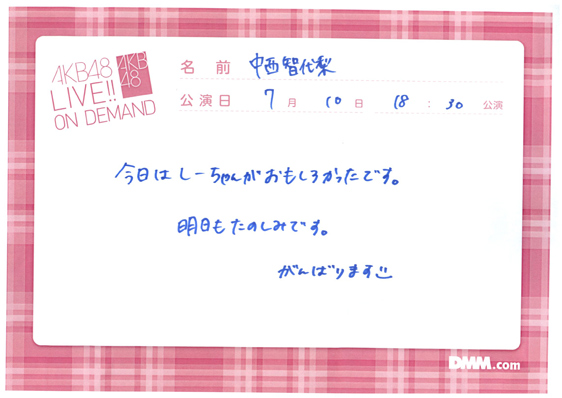 AKB48
LIVE!!
ON DEMAND
AKB
48
名前 中西智代梨
公演日 7月 10日 18:30 公演
今日はしーちゃんがおもしろかったです。
明日もたのしみです。
がんばります
DMM.com